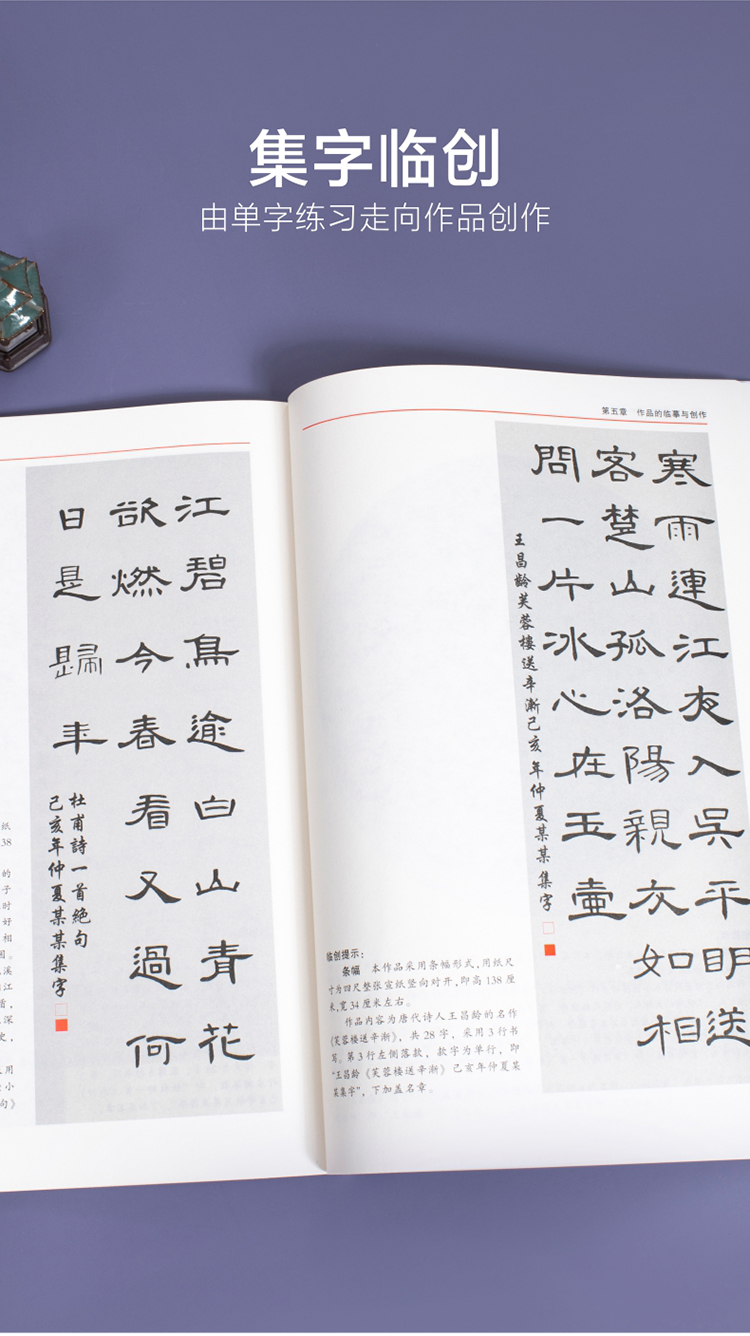 集字临创
由单字练习走向作品创作
江碧鳥逾白山青花
欲燃今春看又過何
日是歸年
杜甫詩一首絕句
己亥年仲夏某某集字
第五章 作品的临摹与创作
寒雨連江夜入吳平明送
客楚山孤洛陽親友如相
問一片冰心在玉壺
王昌齡芙蓉樓送辛漸己亥年仲夏某某集字
临创提示：
条幅 本作品采用条幅形式，用纸尺
寸为四尺整张宣纸竖向对开，即高 138 厘
米，宽 34 厘米左右。
作品内容为唐代诗人王昌龄的名作
《芙蓉楼送辛渐》，共 28 字，采用 3 行书
写。第 3 行左侧落款，款字为单行，即
“王昌龄《芙蓉楼送辛渐》己亥年仲夏某
某集字”，下加盖名章。